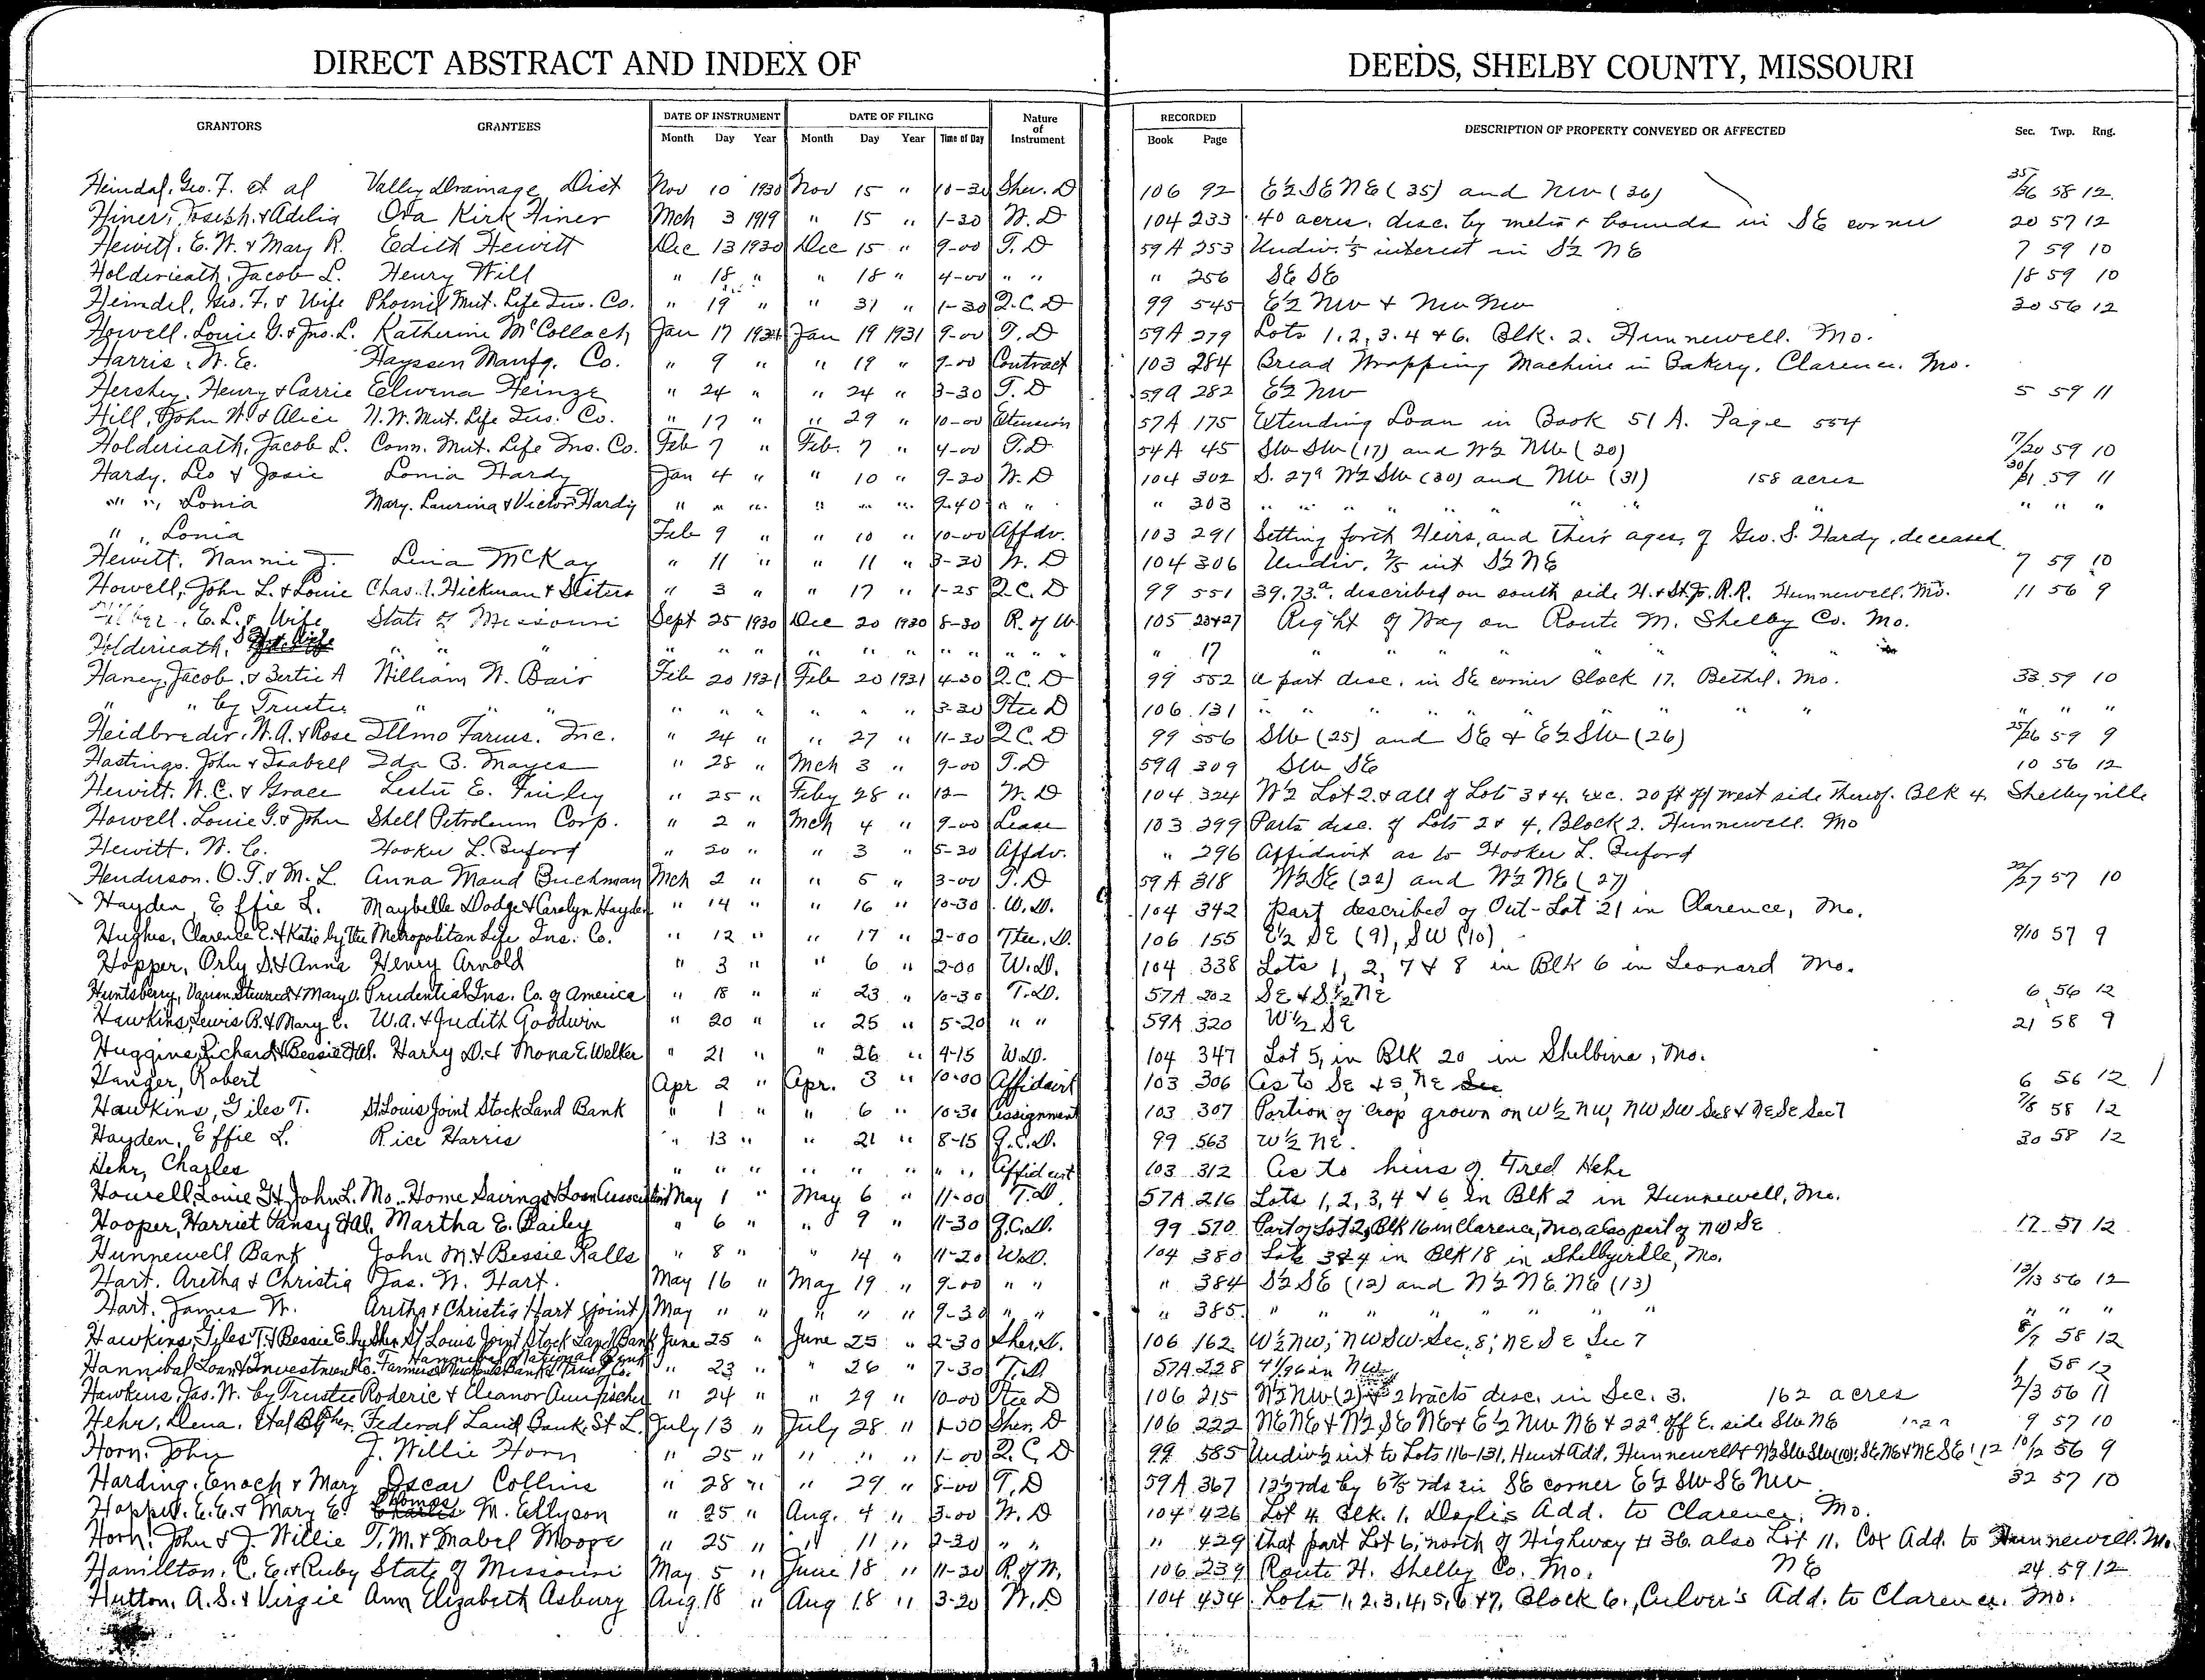 DIRECT ABSTRACT AND INDEX OF DEEDS, SHELBY COUNTY, MISSOURI
GRANTORS GRANTEES DATE OF INSTRUMENT DATE OF FILING Nature of Instrument RECORDED DESCRIPTION OF PROPERTY CONVEYED OR AFFECTED Sec. Twp. Rng.
Month Day Year Month Day Year Time of Day Book Page
Heindal, Geo. F. et al Valley Drainage Dist Nov 10 1930 Nov 15 " 10-30 Sher. D 106 92 E½ SE NE (35) and NW (36) 35/36 58 12
Hiner, Joseph & Adelia Ora Kirk Hiner Mch 3 1919 " 15 " 1-30 W. D 104 233 40 acres, desc. by metes & bounds in SE corner 20 57 12
Hewitt, E. W. & Mary R. Edith Hewitt Dec 13 1930 Dec 15 " 9-00 T. D 59A 253 Undiv. ⅕ interest in S½ NE 7 59 10
Holderieath, Jacob L. Henry Will " 18 " " 18 " 4-00 " " " 256 SE SE 18 59 10
Heindel, Geo. F. & Wife Phoenix Mut. Life Ins. Co. " 19 " " 31 " 1-30 Q. C. D 99 545 E½ NW & NW NW 30 56 12
Howell, Louie G. & Jno. L. Katherine McCollach Jan 17 1931 Jan 19 1931 9-00 T. D 59A 279 Lots 1, 2, 3, 4 & 6. Blk. 2. Hunnewell. Mo.
Harris, W. E. Hayssen Manfg. Co. " 9 " " 19 " 9-00 Contract 103 284 Bread Wrapping Machine in Bakery, Clarence. Mo.
Hershey, Henry & Carrie Elwena Heinze " 24 " " 24 " 3-30 T. D 59A 282 E½ NW 5 59 11
Hill, John W. & Alice N. W. Mut. Life Ins. Co. " 17 " " 29 " 10-00 Etension 57A 175 Extending Loan in Book 51 A. Page 554
Holderieath, Jacob L. Conn. Mut. Life Ins. Co. Feb 7 " Feb. 7 " 4-00 T. D 54A 45 SW SW (17) and W½ NW (20) 17/20 59 10
Hardy, Leo & Josie Lonia Hardy Jan 4 " " 10 " 9-30 W. D 104 302 S. 27ª W½ SW (30) and NW (31) 158 acres 30/31 59 11
" ", Lonia Mary, Laurina & Victor Hardy " " " " " " 9-40 " " " 303 " " " " " " " " " " "
" ", Lonia Feb 9 " " 10 " 10-00 Affdv. 103 291 Setting forth Heirs, and their ages, of Geo. S. Hardy, deceased
Hewitt, Nannie J. Lena McKay " 11 " " 11 " 3-30 W. D 104 306 Undiv. ⅖ int S½ NE 7 59 10
Howell, John L. & Louie Chas. I. Hickman & Sisters " 3 " " 17 " 1-25 Q. C. D 99 551 39.73ª. described on south side H. & St. J. R.R. Hunnewell. Mo. 11 56 9
E. L. & Wife State of Missouri Sept 25 1930 Dec 20 1930 8-30 R. of W. 105 23&27 Right of Way on Route M. Shelby Co. Mo.
Holderieath, " " " " " " " " " " " " " 17 " " " " " "
Haney, Jacob & Bertie A William W. Bair Feb 20 1931 Feb 20 1931 4-30 Q. C. D 99 552 A part desc. in SE corner Block 17. Bethel. Mo. 33 59 10
" " by Trustee " " " " " " " " " 3-30 Ttee D 106 131 " " " " " " " " " " "
Heidbreder, W. A. & Rose Illmo Farms. Inc. " 24 " " 27 " 11-30 Q. C. D 99 556 SW (25) and SE & E½ SW (26) 25/26 59 9
Hastings, John & Isabell Ida B. Mayes " 28 " Mch 3 " 9-00 T. D 59A 309 SW SE 10 56 12
Hewitt, W. C. & Grace Leslie E. Finley " 25 " Feby 28 " 12- W. D 104 324 W½ Lot 2. & all of Lots 3 & 4, exc. 20 ft off west side thereof. Blk 4. Shelbyville
Howell, Louie G. & John Shell Petroleum Corp. " 2 " Mch 4 " 9-00 Lease 103 299 Parts desc. of Lots 2 & 4, Block 2. Hunnewell. Mo
Hewitt, W. C. Hooker L. Buford " 20 " " 3 " 5-30 Affdv. " 296 Affidavit as to Hooker L. Buford
Henderson, O. T. & M. L. Anna Maud Buckman Mch 2 " " 5 " 3-00 T. D 59A 318 W½ SE (22) and W½ NE (27) 22/27 57 10
Hayden, Effie L. Maybelle Dodge & Carolyn Hayden " 14 " " 16 " 10-30 W. D. 104 342 Part described of Out-Lot 21 in Clarence, Mo.
Hughes, Clarence E. & Katie by ttee Metropolitan Life Ins. Co. " 12 " " 17 " 2-00 Ttee. D. 106 155 E½ SE (9), SW (10) 9/10 57 9
Hopper, Orly S. & Anna Henry Arnold " 3 " " 6 " 2-00 W. D. 104 338 Lots 1, 2, 7 & 8 in Blk 6 in Leonard Mo.
Huntsberry, & Mary V. Prudential Ins. Co. of America " 18 " " 23 " 10-30 T. D. 57A 202 SE & S½ NE 6 56 12
Hawkins, Lewis B. & Mary E. W. A. & Judith Goodwin " 20 " " 25 " 5-20 " " 59A 320 W½ SE 21 58 9
Huggins, Richard & Bessie et al. Harry D. & Mona E. Welker " 21 " " 26 " 4-15 W.D. 104 347 Lot 5, in Blk 20 in Shelbina, Mo.
Hanger, Robert Apr 2 " Apr. 3 " 10-00 Affidavit 103 306 As to SE & S½ NE Sec 6 56 12
Hawkins, Giles T. St Louis Joint Stock Land Bank " 1 " " 6 " 10-30 Assignment 103 307 Portion of Crop grown on W½ NW, NW SW Sec 8 & NE SE Sec 7 7/8 58 12
Hayden, Effie L. Rice Harris " 13 " " 21 " 8-15 Q.C.D. 99 563 W½ NE. 30 58 12
Hehr, Charles " " " " " " " " Affidavit 103 312 As to heirs of Fred Hehr
Howell, Louie G. & John L. Mo. Home Savings & Loan Association May 1 " May 6 " 11-00 T. D. 57A 216 Lots 1, 2, 3, 4 & 6 in Blk 2 in Hunnewell, Mo.
Hooper, Harriet Pansy et al. Martha E. Bailey " 6 " " 9 " 11-30 Q.C.D. 99 570 Part of Lot 2, Blk 16 in Clarence, Mo, also part of NW SE 17 57 12
Hunnewell Bank John M. & Bessie Ralls " 8 " " 14 " 11-20 W.D. 104 380 Lots 3 & 4 in Blk 18 in Shelbyville, Mo.
Hart, Aretha & Christia Jas. W. Hart. May 16 " May 19 " 9-00 " " " 384 S½ SE (12) and N½ NE NE (13) 12/13 56 12
Hart, James W. Aretha & Christia Hart (joint) May " " " " " 9-30 " " " 385 " " " " " " " " " "
Hawkins, Giles T. & Bessie E. by Sher. St Louis Joint Stock Land Bank June 25 " June 25 " 2-30 Sher. D. 106 162 W½ NW; NW SW Sec. 8; NE SE Sec 7 8/7 58 12
Hannibal Loan & Investment Co. Hannibal National Bank " 23 " " 26 " 7-30 T. D. 57A 228 41/96 in NW 1 58 12
Hawkins, Jas. W. by Trustee Roderic & Eleanor Ann Fischer " 24 " " 29 " 10-00 Ttee D 106 215 N½ NW (2) & 2 tracts desc. in Sec. 3. 162 acres 2/3 56 11
Hehr, Dena, et al By Sher. Federal Land Bank, St L. July 13 " July 28 " 1-30 Sher. D 106 222 NE NE & N½ SE NE & E½ NW NE & 22ª off E. side SW NE 9 57 10
Horn, John J. Willie Horn " 25 " " " " 1-00 Q. C. D 99 585 Undiv ½ int to Lots 116-131, Hunt Add. Hunnewell & W½ SW SW (10), SE NE & NE SE 12 10/12 56 9
Harding, Enoch & Mary Oscar Collins " 28 " " 29 " 8-00 T. D 59A 367 rds by rds in SE corner E½ SW SE NW 32 57 10
Hopper, E. E. & Mary E. Thomas M. Ellyson " 25 " Aug. 4 " 3-00 W. D 104 426 Lot 4. Blk. 1, Add. to Clarence, Mo.
Horn, John & J. Willie T. M. & Mabel Moore " 25 " " 11 " 2-30 " " " 429 that part Lot 6, north of Highway # 36. also Lot 11, Cox Add. to Hunnewell. Mo.
Hamillton, C. E. & Ruby State of Missouri May 5 " June 18 " 11-20 R. of W. 106 239 Route H. Shelby Co. Mo. NE 24 59 12
Hutton, A. S. & Virgie Ann Elizabeth Asbury Aug. 18 " Aug 18 " 3-20 W. D 104 434 Lots 1, 2, 3, 4, 5, 6 & 7, Block 6., Culver's Add. to Clarence. Mo.